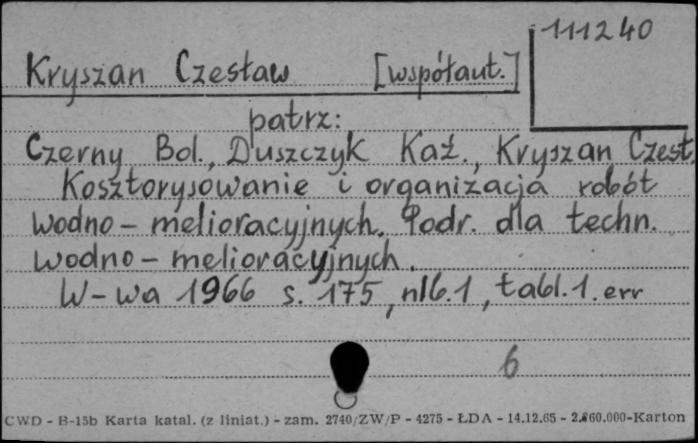 111240
Kryszan Czesław [współaut.]
patrz:
Czerny Bol., Duszczyk Kaź., Kryszan Czesł.
Kosztorysowanie i organizacja robót
wodno-melioracyjnych. Podr. dla techn.
wodno-melioracyjnych.
W-wa 1966 s. 175, nlb.1, tabl.1. err
6
CWD - B-15b Karta katal. (z liniat.) - zam. 2740/ZW/P - 4275 - ŁDA - 14.12.65 - 2.860.000-Karton